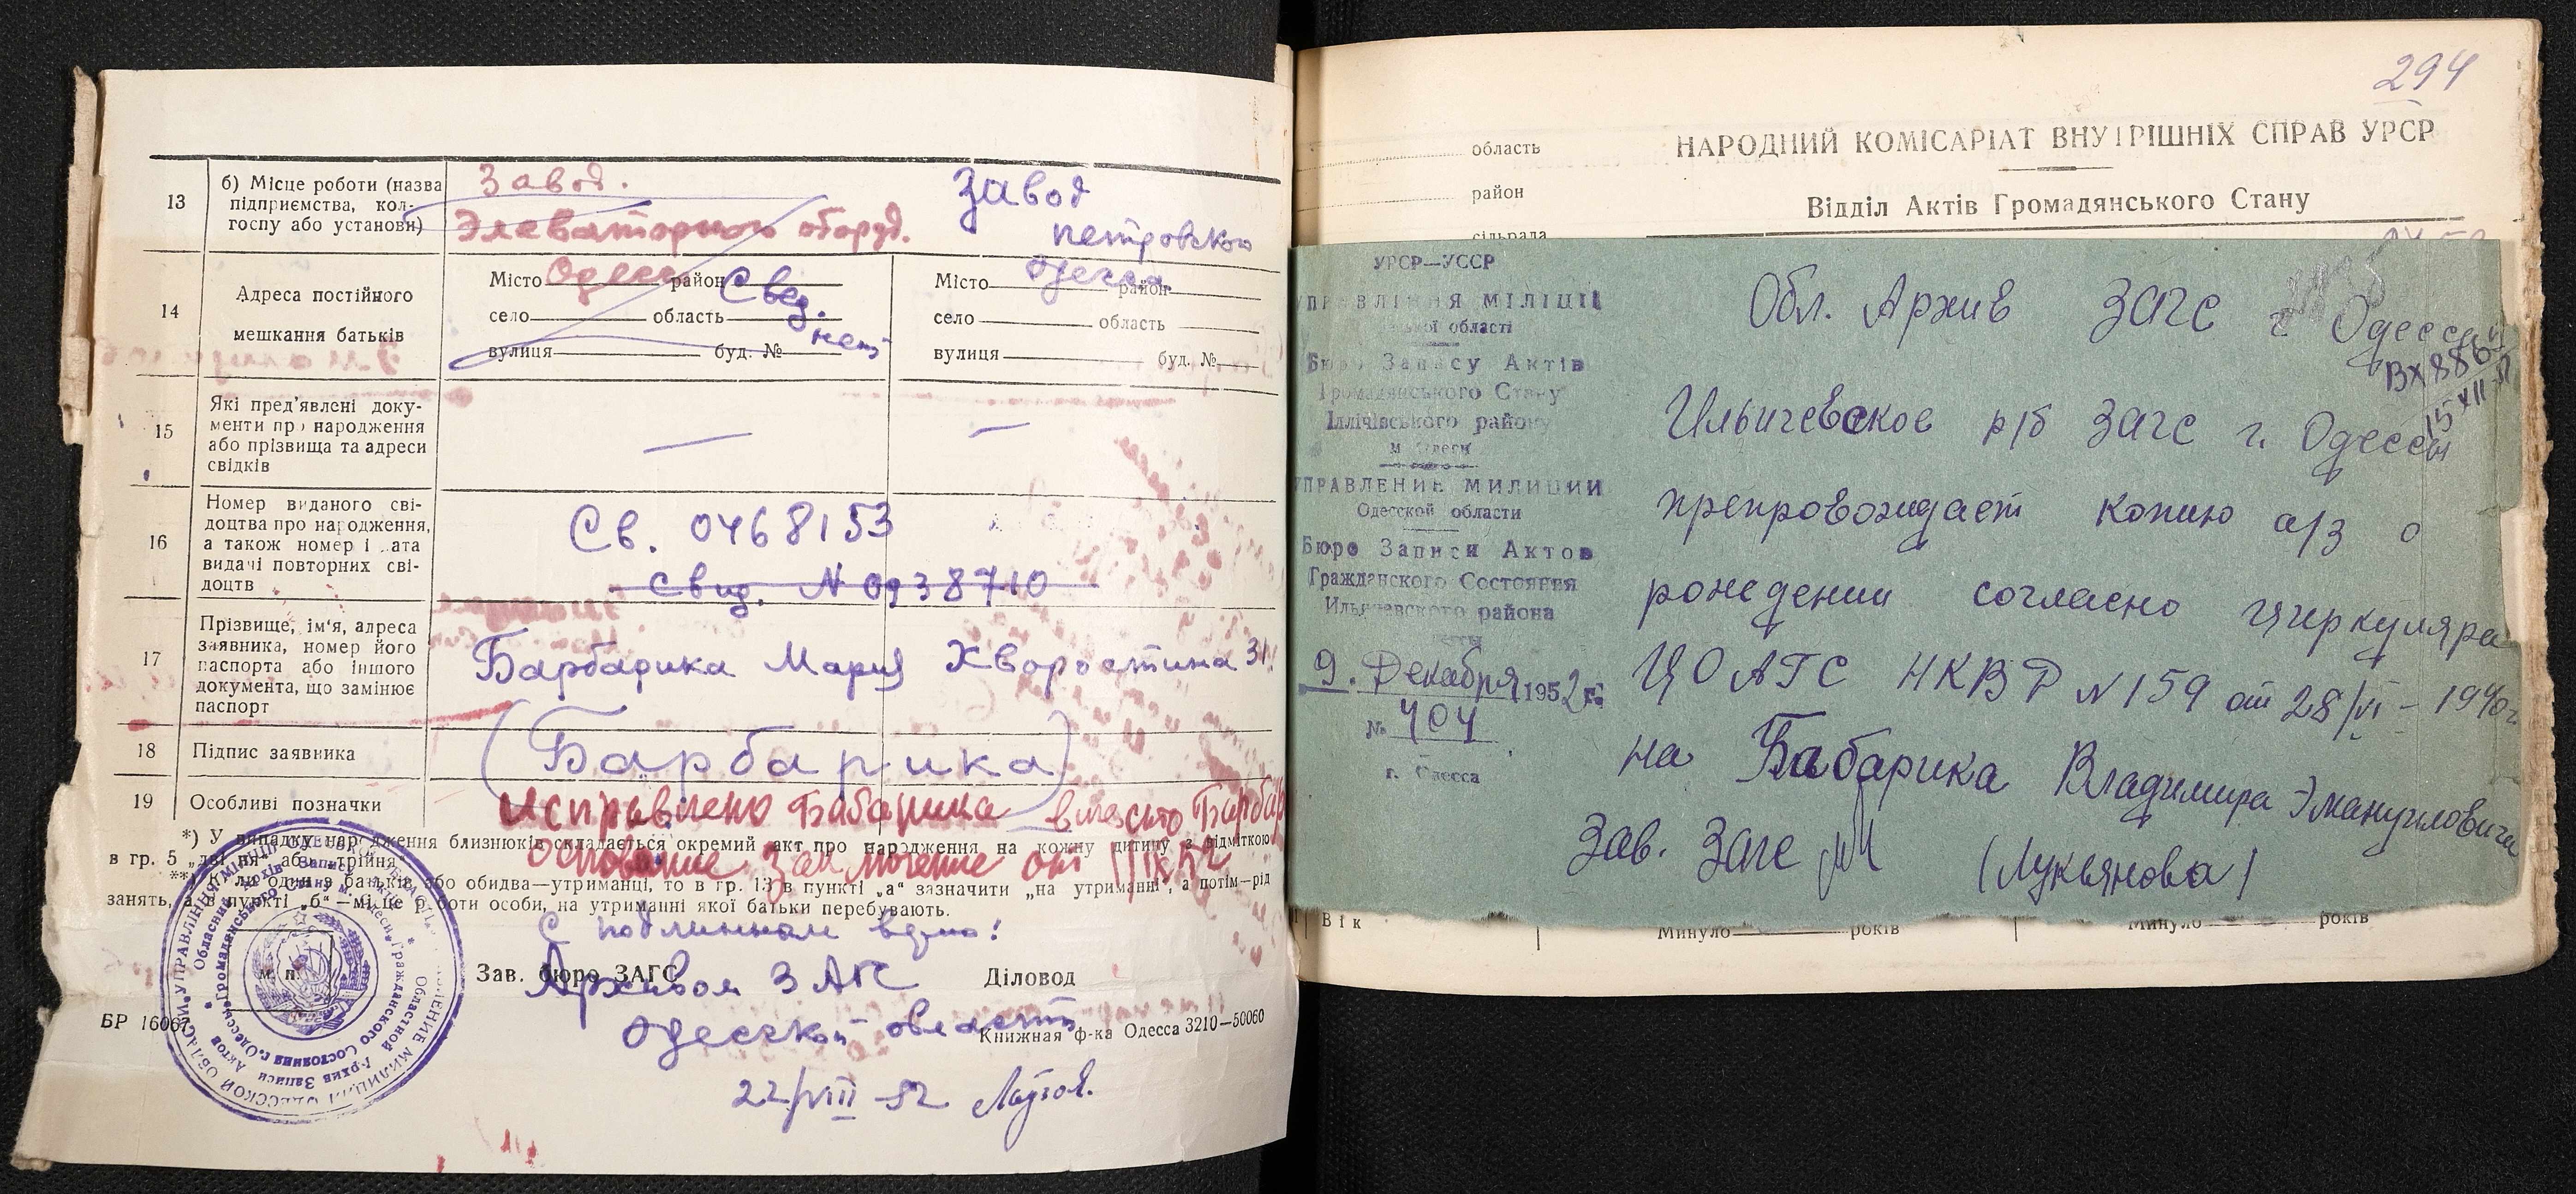 13
б) Місце роботи (назва
підприємства, кол-
госпу або установи)
Завод.
Элеваторного оборуд.
Завод
петровского
14
Адреса постійного
мешкання батьків
Місто Одесса район
село область
вулиця буд. №
Свед.
нет
Місто Одесса район
село область
вулиця буд. №
15
Які пред'явлені доку-
менти про народження
або прізвища та адреси
свідків
—
—
16
Номер виданого сві-
доцтва про народження,
а також номер і дата
видачі повторних сві-
доцтв
Св. 0468153
свид. N 0938710
17
Прізвище, ім'я, адреса
заявника, номер його
паспорта або іншого
документа, що замінює
паспорт
Барбарика Мария Хворостина 31.
18
Підпис заявника
(Барбарика)
19
Особливі позначки
Исправлено Бабарика вместо Барбар
Основание Заключение от
*) У випадку народження близнюків складається окремий акт про народження на кожну дитину з відміткою
в гр. 5 „двійня“ або „трійня“
**) Коли один з батьків або обидва—утриманці, то в гр. 13 в пункті „а“ зазначити „на утриманні“, а потім—рід
занять, а в пункті „б“—місце роботи особи, на утриманні якої батьки перебувають.
С подлинным верно:
Зав. бюро ЗАГС
Діловод
Архивом ЗАГС
Одесской области
м. п.
БР 16067
Книжная ф-ка Одесса 3210—50060
22/VIII-52
294
НАРОДНИЙ КОМІСАРІАТ ВНУТРІШНІХ СПРАВ УРСР
Відділ Актів Громадянського Стану
область
район
сільрада
УРСР—УССР
УПРАВЛІННЯ МІЛІЦІЇ
Одеської області
Бюро Запису Актів
Громадянського Стану
Іллічівського району
м. Одеси
УПРАВЛЕНИЕ МИЛИЦИИ
Одесской области
Бюро Записи Актов
Гражданского Состояния
Ильичевского района
9. Декабря 1952 г.
№ 404
г. Одесса
Обл. Архив ЗАГС г. Одессы
Вх 886
15 XII
Ильичевское р/б ЗАГС г. Одессы
препровождает копию а/з о
рождении согласно циркуляра
ЦОАГС НКВД N 159 от 28/VI - 1940г.
на Бабарика Владимира Эмануиловича
Зав. Загс (Лукьянова)
Вік
Минуло років
Минуло років